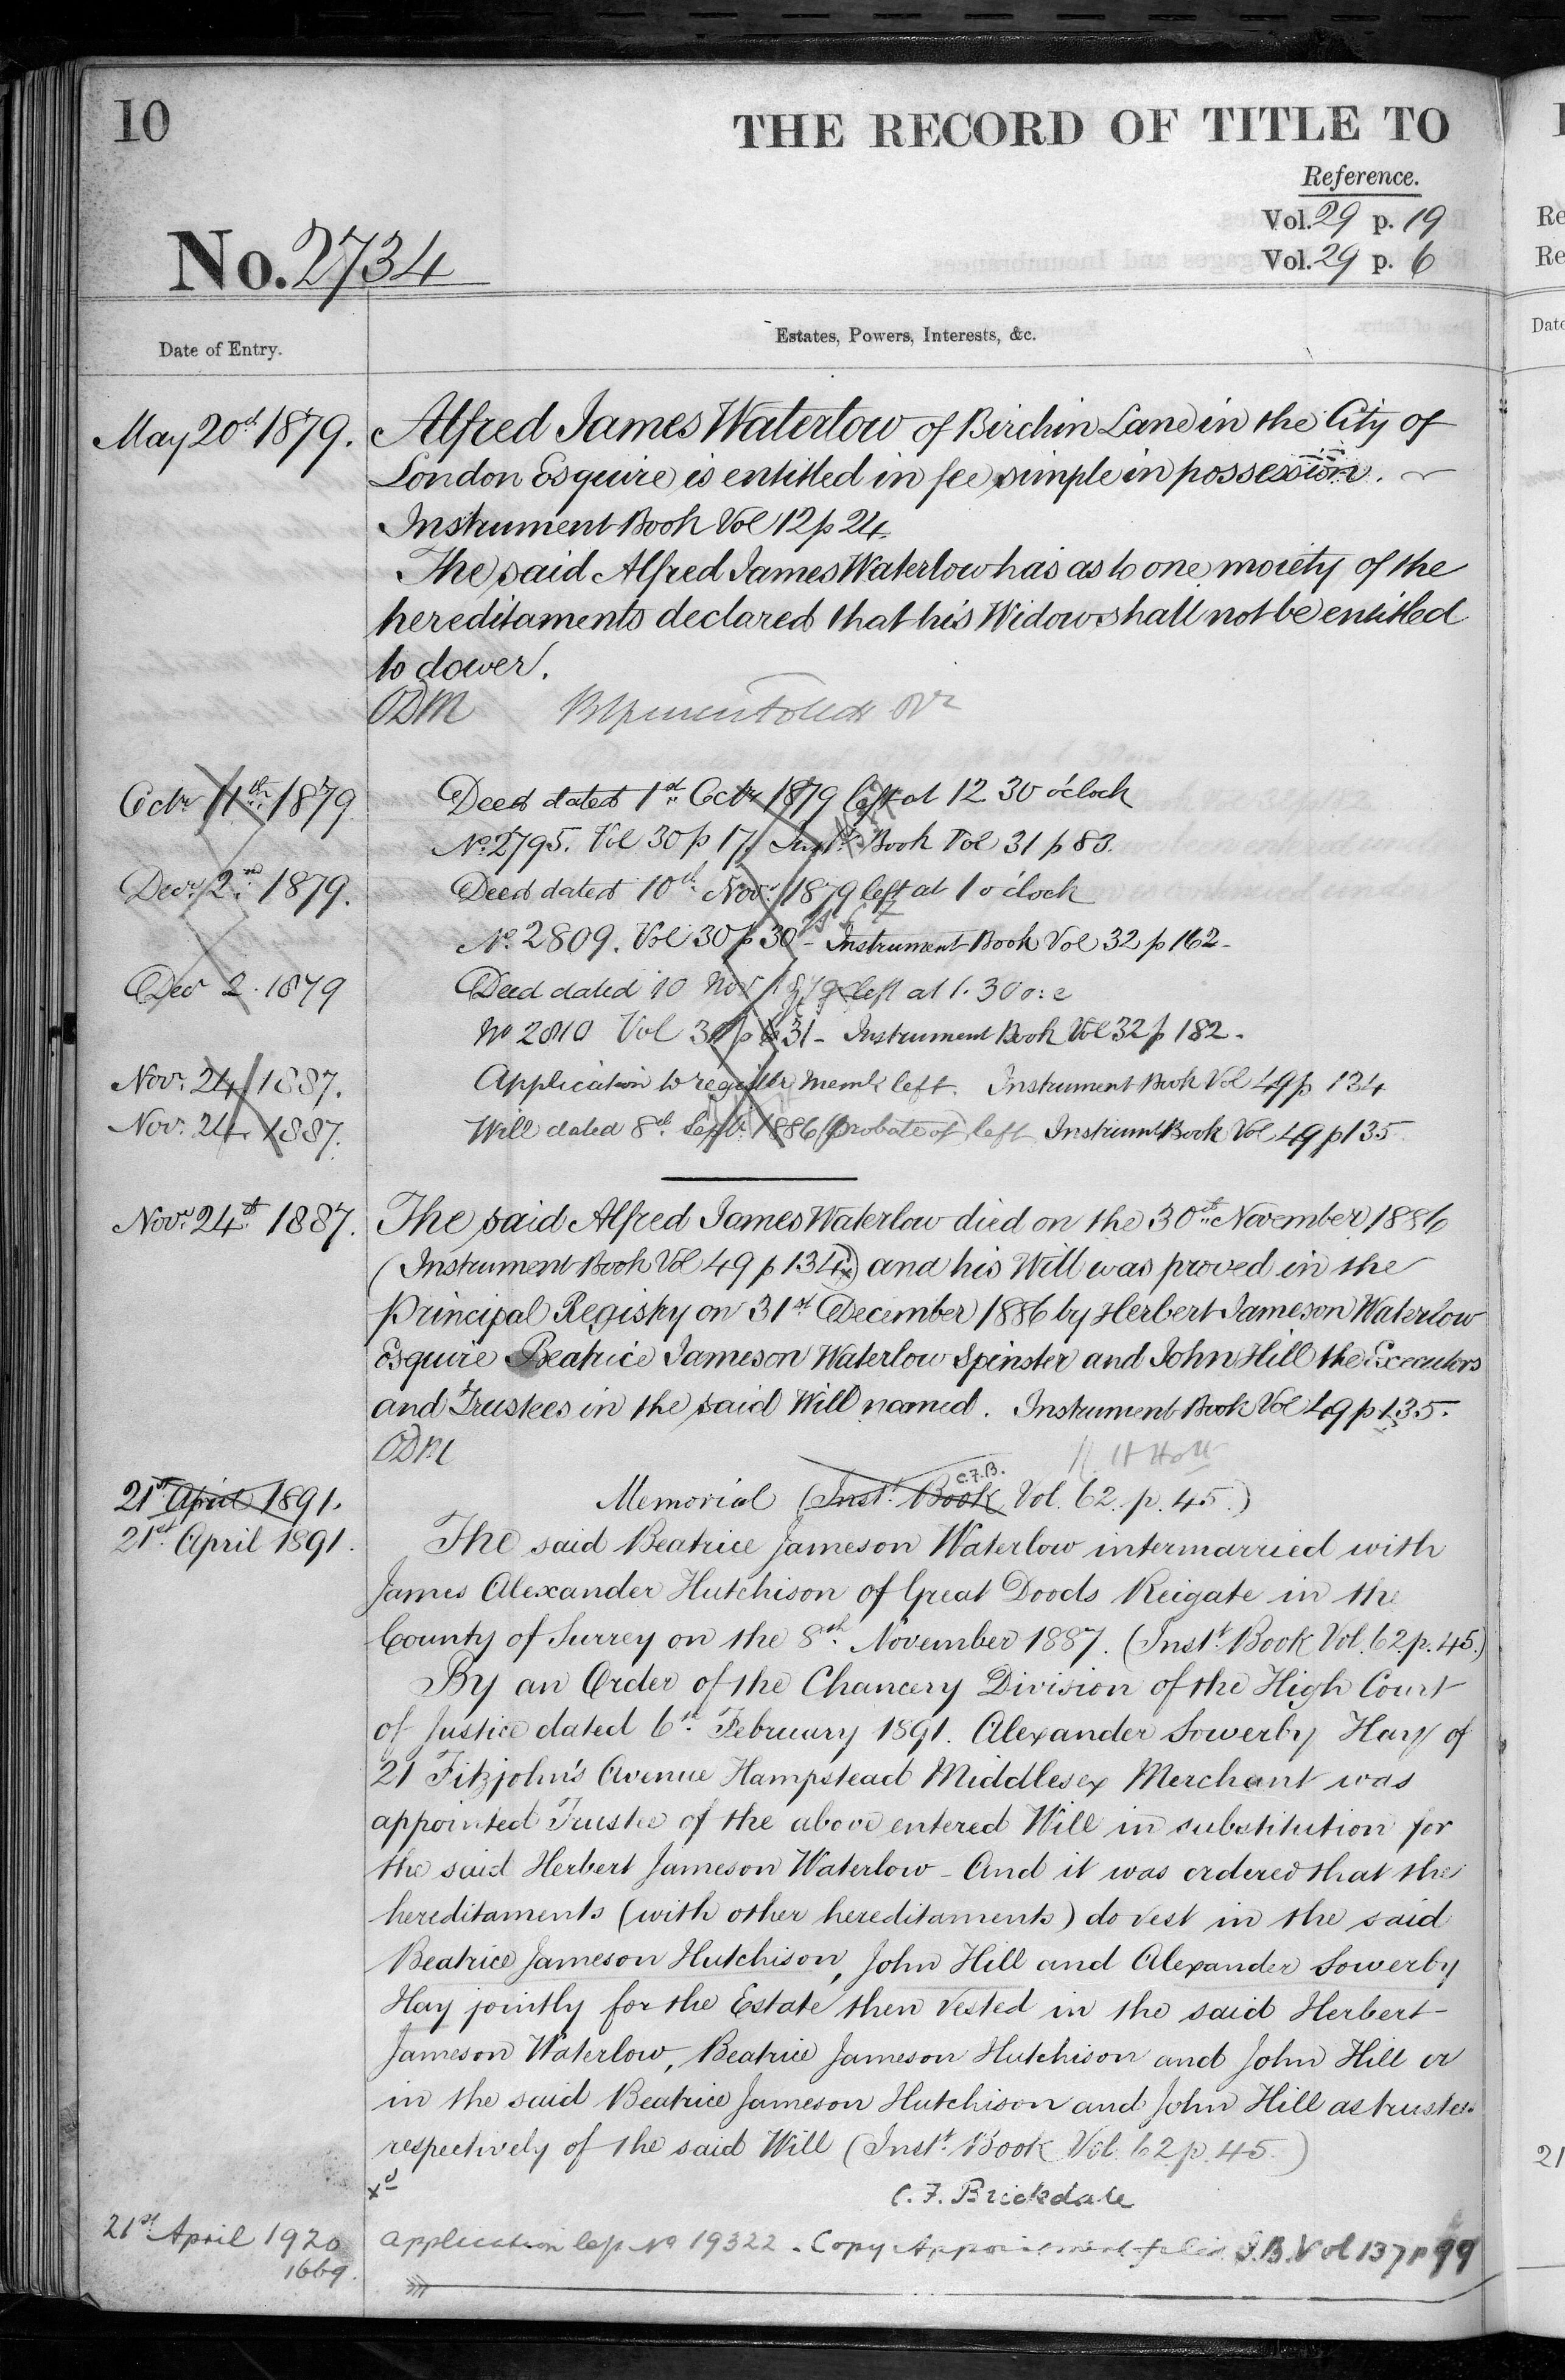 10
THE RECORD OF TITLE TO
Reference.
Vol. 29 p. 19
No. 2734
Vol. 29 p. 6
Date of Entry.
Estates, Powers, Interests, &c.
May 20th 1879. Alfred James Waterlow of Birchin Lane in the City of
London Esquire is entitled in fee simple in possession.
Instrument Book Vol 12 p 24.
The said Alfred James Waterlow has as to one moiety of the
hereditaments declared that his Widow shall not be entitled
to dower.
ODM
Octr 11th 1879 Deed dated 1st Octr 1879 left at 12 30 o'clock
No. 2795. Vol 30 p 17. Inst. Book Vol 31 p 83.
Decr. 2nd 1879. Deed dated 10th Novr. 1879 left at 1 o'clock
No. 2809. Vol 30 p 30 - Instrument Book Vol 32 p 162 -
Decr 2. 1879 Deed dated 10 Novr 1879 left at 1.30 o:c
No 2810 Vol 30 p 31 - Instrument Book Vol 32 p 182 -
Novr. 24 1887. Application to register left. Instrument Book Vol 49 p 134
Novr. 24. 1887. Will dated 8th Septr. 1886 (probate of) left Instrumt Book Vol 49 p 135
Novr. 24th 1887. The said Alfred James Waterlow died on the 30th November 1886
(Instrument Book Vol 49 p 134) and his Will was proved in the
Principal Registry on 31st December 1886 by Herbert Jameson Waterlow
Esquire Beatrice Jameson Waterlow Spinster and John Hill the Executors
and Trustees in the said Will named. Instrument Book Vol 49 p 135.
ODM
C.F.B.
21st April 1891. Memorial (Inst. Book Vol. 62. p. 45.)
21st April 1891. The said Beatrice Jameson Waterlow intermarried with
James Alexander Hutchison of Great Doods Reigate in the
County of Surrey on the 8th November 1887. (Inst. Book Vol. 62. p. 45.)
By an Order of the Chancery Division of the High Court
of Justice dated 6th February 1891. Alexander Sowerby Hay of
21 Fitzjohn's Avenue Hampstead Middlesex Merchant was
appointed Trustee of the above entered Will in substitution for
the said Herbert Jameson Waterlow - And it was ordered that the
hereditaments (with other hereditaments) do vest in the said
Beatrice Jameson Hutchison, John Hill and Alexander Sowerby
Hay jointly for the Estate then vested in the said Herbert
Jameson Waterlow, Beatrice Jameson Hutchison and John Hill or
in the said Beatrice Jameson Hutchison and John Hill as trustees
respectively of the said Will (Inst. Book Vol. 62 p. 45.)
C. F. Brickdale
21st April 1920 Application left No 19322 - Copy Appointment filed I.B. Vol 137 p 99
1669.